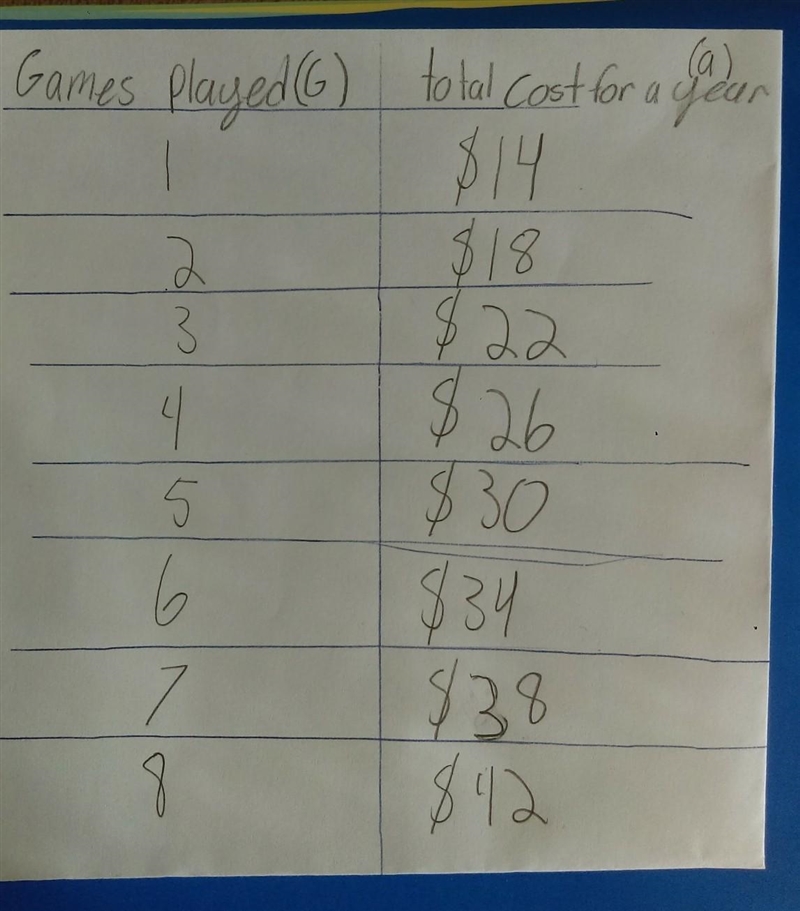 Games played(G) total cost for a year (a)
1 $14
2 $18
3 $22
4 $26
5 $30
6 $34
7 $38
8 $42